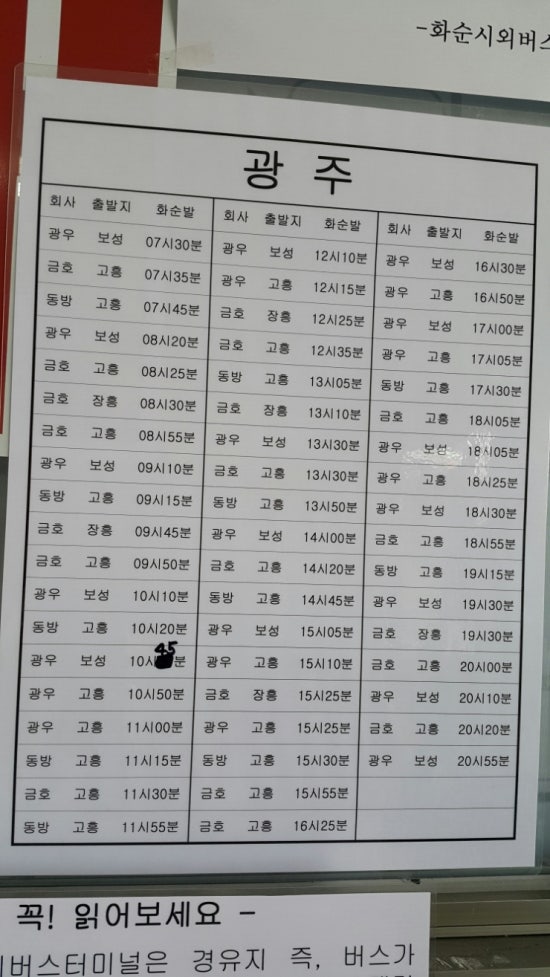 -화순시외버스
광주
회사 출발지 화순발
광우 보성 07시30분
금호 고흥 07시35분
동방 고흥 07시45분
광우 보성 08시20분
금호 고흥 08시25분
금호 장흥 08시30분
금호 고흥 08시55분
광우 보성 09시10분
동방 고흥 09시15분
금호 장흥 09시45분
금호 고흥 09시50분
광우 보성 10시10분
동방 고흥 10시20분
광우 보성 10시45분
광우 고흥 10시50분
광우 고흥 11시00분
동방 고흥 11시15분
금호 고흥 11시30분
동방 고흥 11시55분
회사 출발지 화순발
광우 보성 12시10분
광우 고흥 12시15분
금호 장흥 12시25분
금호 고흥 12시35분
동방 고흥 13시05분
금호 장흥 13시10분
광우 보성 13시30분
금호 고흥 13시30분
동방 고흥 13시50분
광우 보성 14시00분
금호 고흥 14시20분
동방 고흥 14시45분
광우 보성 15시05분
광우 고흥 15시10분
금호 장흥 15시25분
광우 고흥 15시25분
동방 고흥 15시30분
금호 고흥 15시55분
금호 고흥 16시25분
회사 출발지 화순발
광우 보성 16시30분
광우 고흥 16시50분
광우 보성 17시00분
광우 고흥 17시05분
동방 고흥 17시30분
금호 고흥 18시05분
광우 보성 18시05분
광우 고흥 18시25분
광우 보성 18시30분
금호 고흥 18시55분
동방 고흥 19시15분
광우 보성 19시30분
금호 장흥 19시30분
금호 고흥 20시00분
광우 보성 20시10분
금호 고흥 20시20분
광우 보성 20시55분
꼭! 읽어보세요 -
버스터미널은 경유지 즉, 버스가